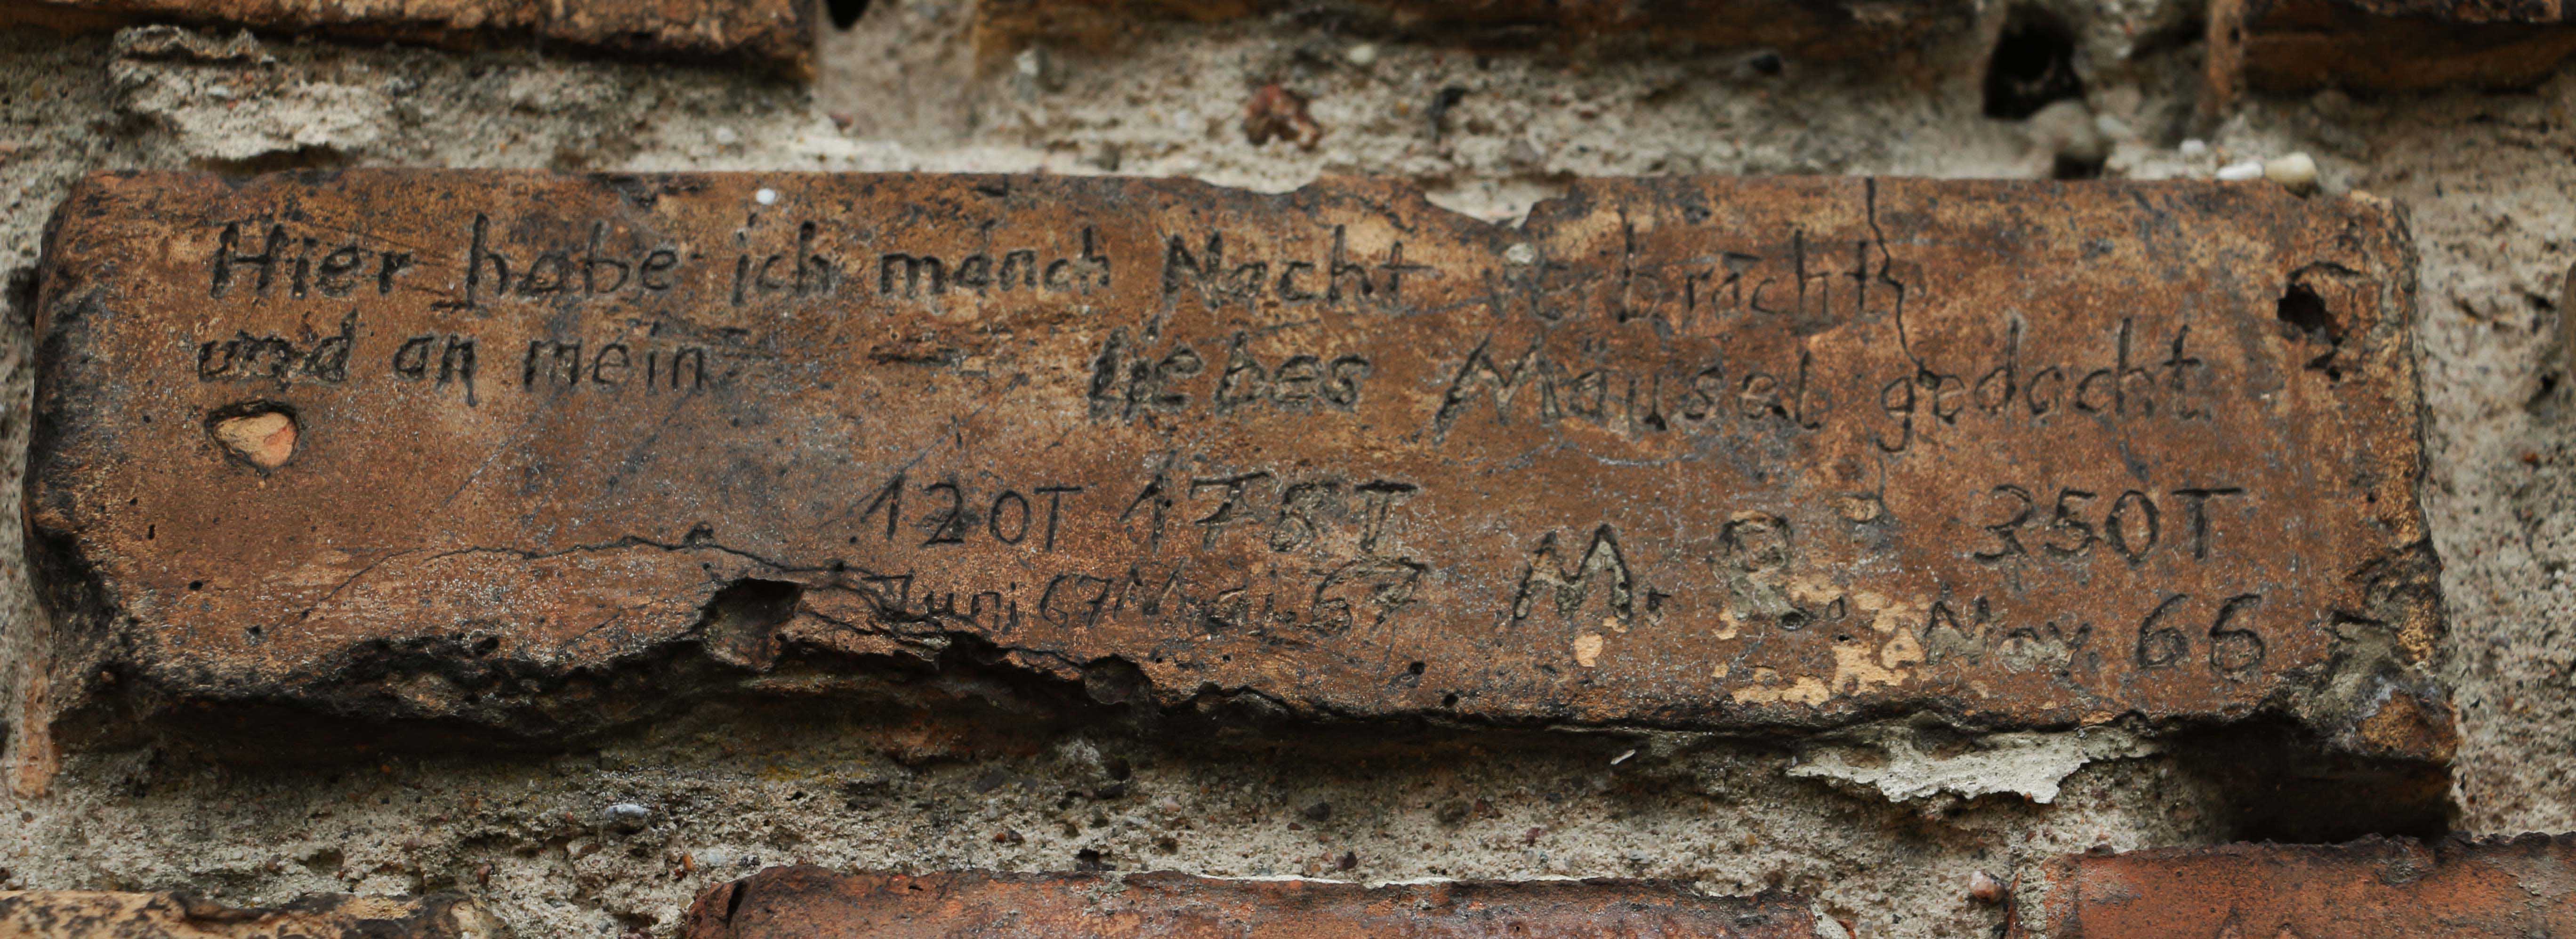 Hier habe ich manch Nacht verbracht
und an mein liebes Mäusel gedacht
120T 175T M. R. 350T
Juni 67 Mai 67 Nov. 66